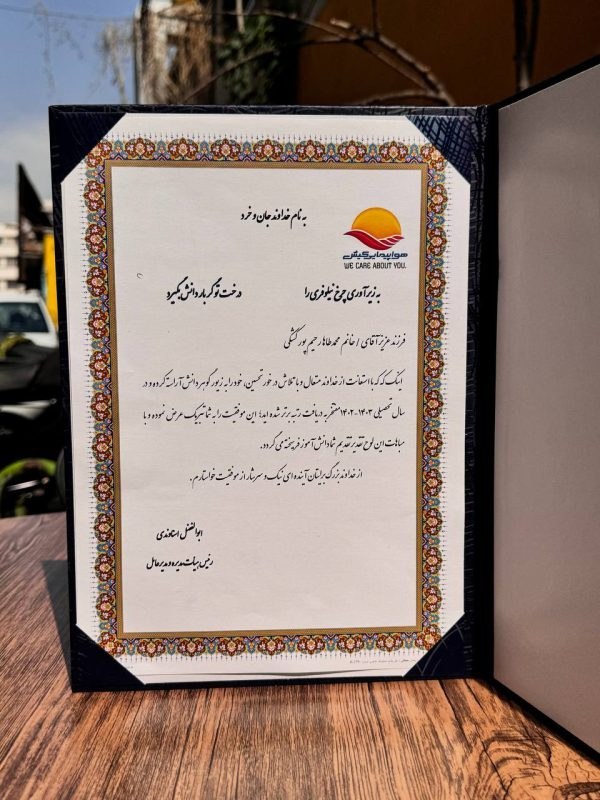 به نام خداوند جان و خرد
هواپیمایی کیش
WE CARE ABOUT YOU.
درخت تو گر بار دانش بگیرد به زیر آوری چرخ نیلوفری را
فرزند عزیز آقای / خانم محمدطاها رحیم پور کشکی
اینک که با استعانت از خداوند متعال و با تلاش در خور تحسین، خود را به زیور گوهر دانش آراسته کرده و در
سال تحصیلی ۱۴۰۳-۱۴۰۲ مفتخر به دریافت رتبه برتر شده اید؛ این موفقیت را به شما تبریک عرض نموده و با
مباهات این لوح تقدیر تقدیم شما دانش آموز فرهیخته می گردد.
از خداوند بزرگ برایتان آینده ای نیک و سرشار از موفقیت خواستارم.
ابوالفضل استاوندی
رئیس هیأت مدیره و مدیرعامل